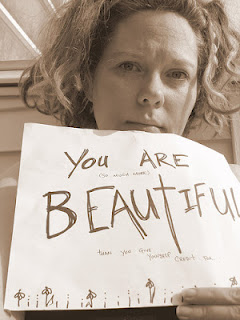 YOU ARE
(SO MUCH MORE)
BEAUTIFUL
than you give
yourself credit for